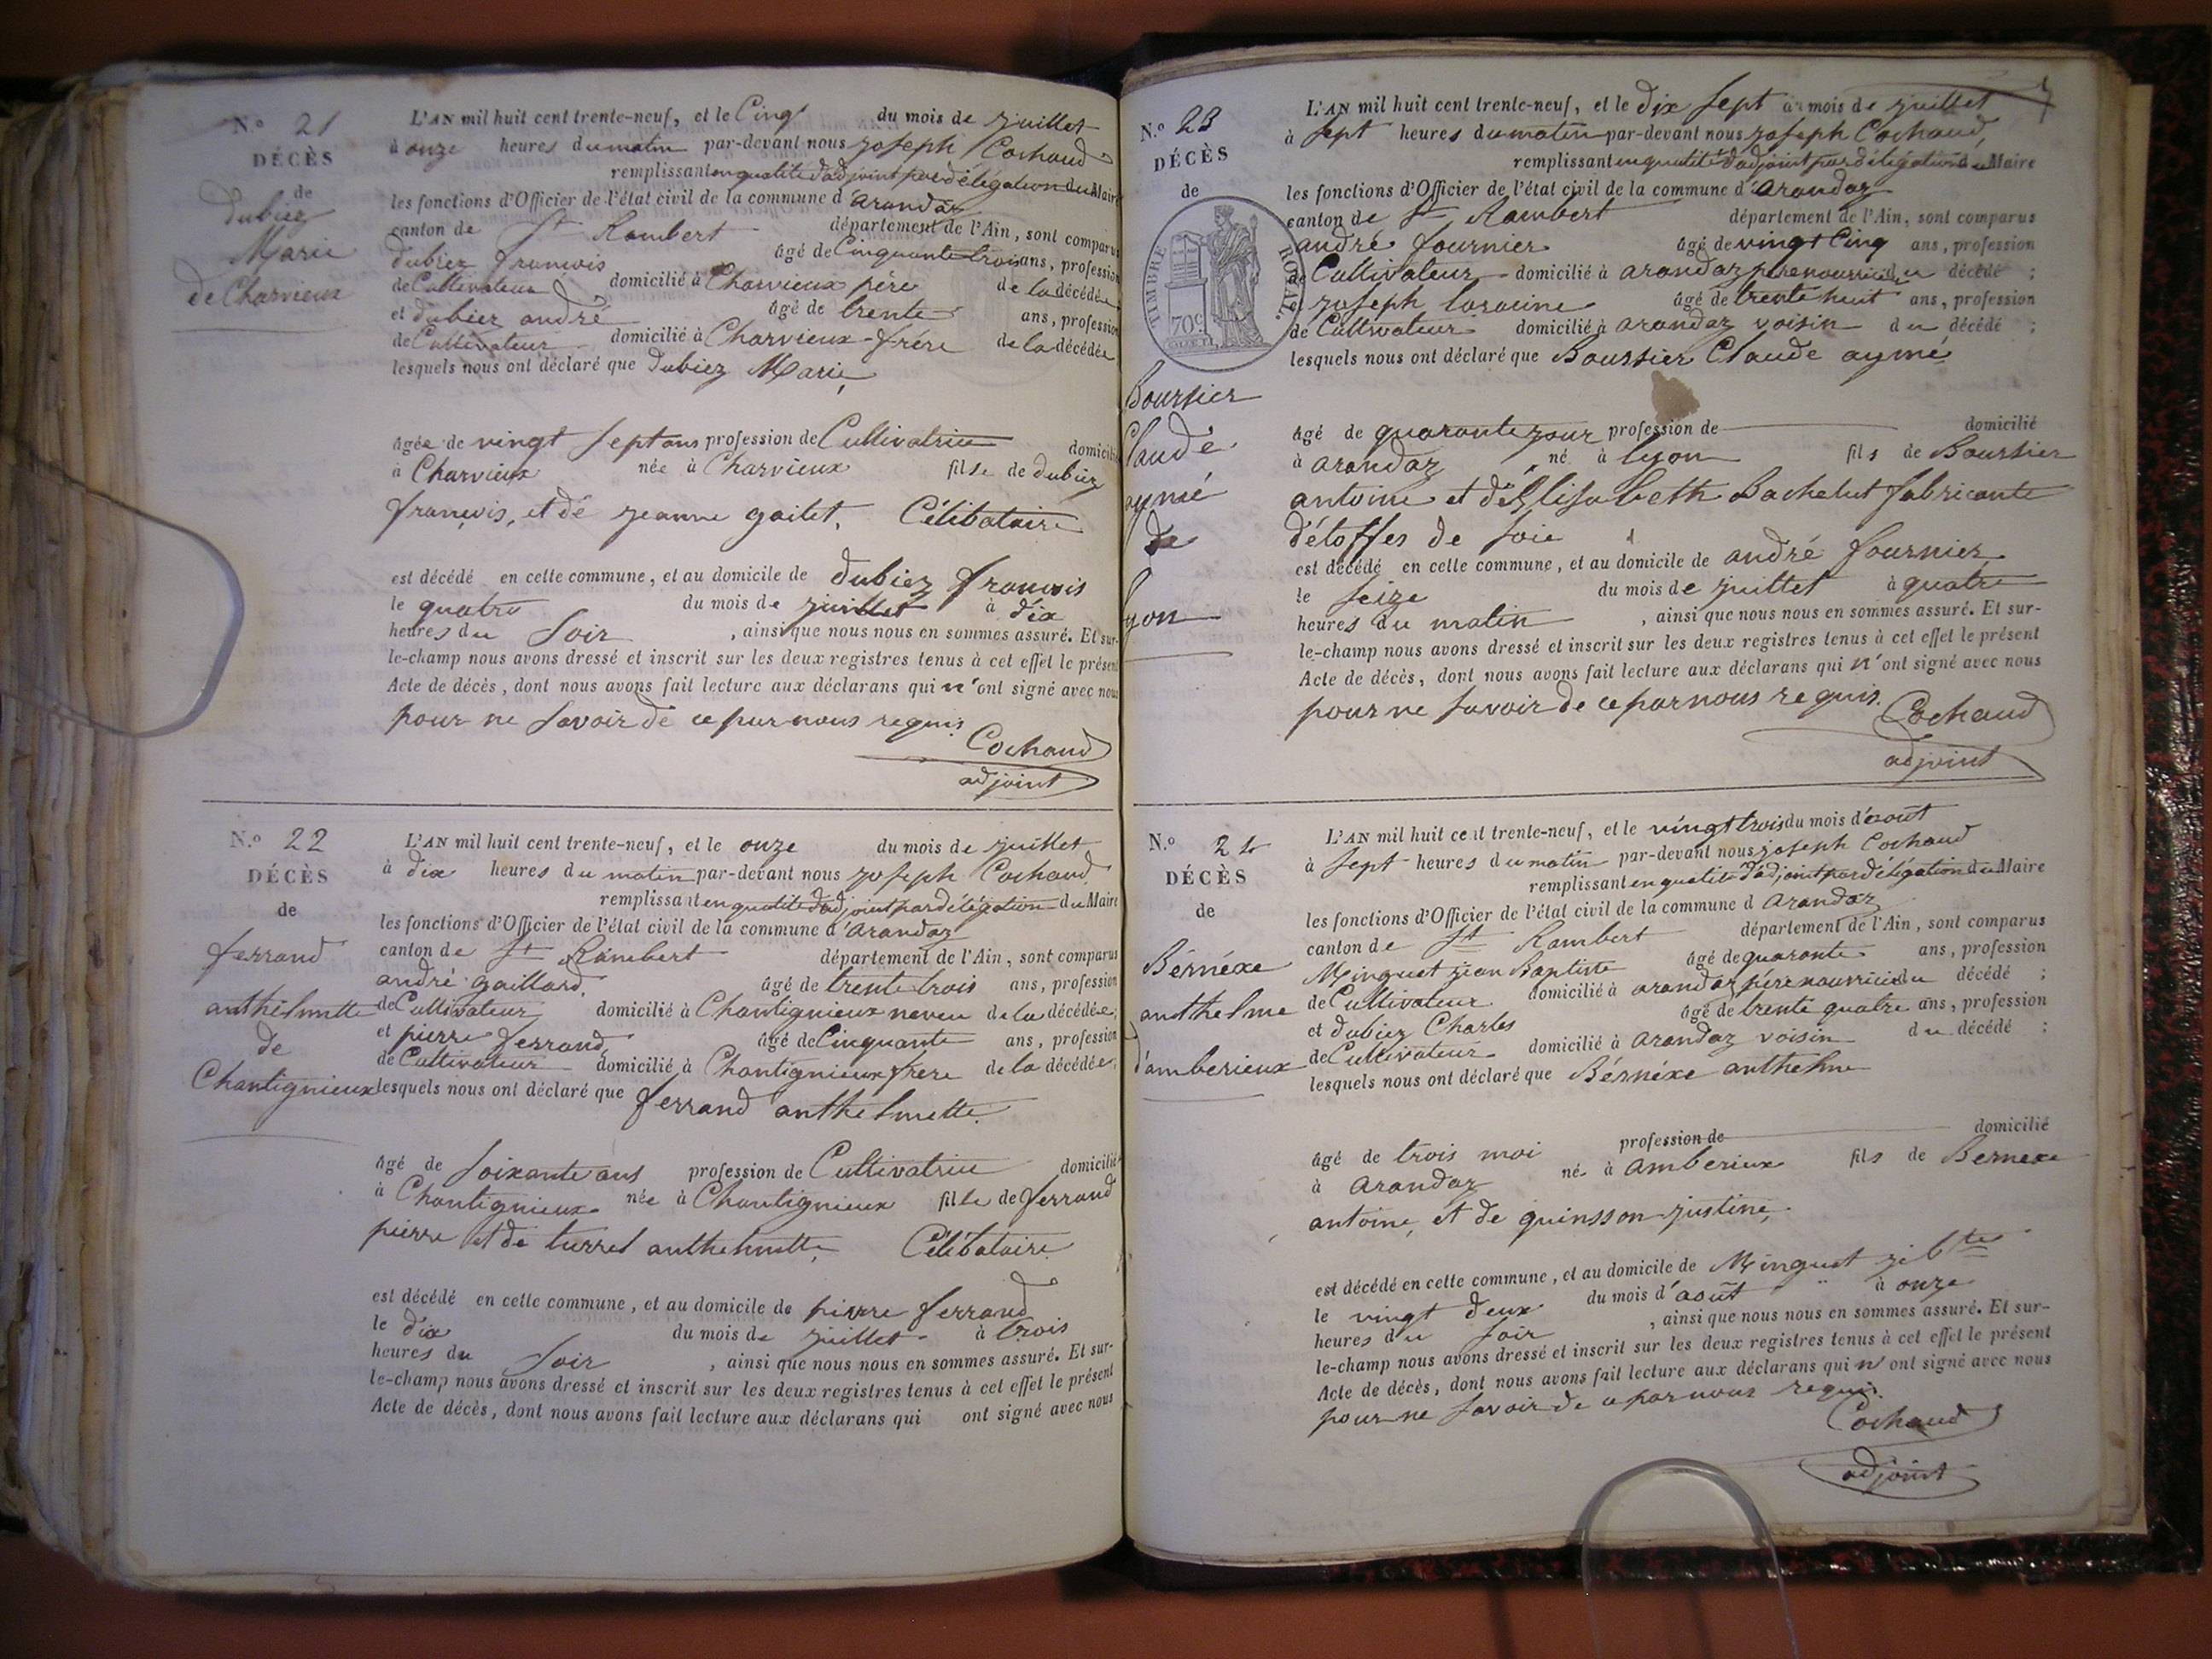 N.º 21
DÉCÈS
de
Dubiez
Marie
de Charvieux
L'AN mil huit cent trente-neuf, et le Cinq du mois de juillet
à onze heures du matin par-devant nous joseph Cochaud
remplissant en qualité d'adjoint par délégation du Maire
les fonctions d'Officier de l'état civil de la commune d'arandaz
canton de St Rambert département de l'Ain, sont comparus
Dubiez francois âgé de Cinquante trois ans, profession
de Cultivateur domicilié à Charvieux père de la décédée
et Dubiez andré âgé de trente ans, profession
de Cultivateur domicilié à Charvieux frére de la décédée
lesquels nous ont déclaré que Dubiez Marie,
âgée de vingt sept ans profession de Cultivatrice domicilié
à Charvieux née à Charvieux fille de Dubiez
françois, et de jeanne gaillet, Célibataire
est décédé en cette commune, et au domicile de Dubiez francois
le quatre du mois de juillet à dix
heures du soir , ainsi que nous nous en sommes assuré. Et sur-
le-champ nous avons dressé et inscrit sur les deux registres tenus à cet effet le présent
Acte de décès, dont nous avons fait lecture aux déclarans qui n'ont signé avec nous
pour ne savoir de ce par nous requis.
Cochaud
adjoint
N.º 22
DÉCÈS
de
ferrand
anthelmette
de
Chantignieux
L'AN mil huit cent trente-neuf, et le onze du mois de juillet
à dix heures du matin par-devant nous joseph Cochaud
remplissant en qualité d'adjoint par délégation du Maire
les fonctions d'Officier de l'état civil de la commune d'arandaz
canton de St Rambert département de l'Ain, sont comparus
andré gaillard, âgé de trente trois ans, profession
de Cultivateur domicilié à Chantignieux neveu de la décédée;
et pierre ferrand âgé de Cinquante ans, profession
de Cultivateur domicilié à Chantignieux frère de la décédée,
lesquels nous ont déclaré que ferrand anthelmette.
âgé de soixante ans profession de Cultivatrice domicilié
à Chantignieux née à Chantignieux fille de ferrand
pierre et de turrel anthelmette, Célibataire.
est décédé en cette commune, et au domicile de pierre ferrand
le dix du mois de juillet à trois
heures du soir , ainsi que nous nous en sommes assuré. Et sur-
le-champ nous avons dressé et inscrit sur les deux registres tenus à cet effet le présent
Acte de décès, dont nous avons fait lecture aux déclarans qui ont signé avec nous
N.º 23
DÉCÈS
de
TIMBRE ROYAL.
70c
Boursier
Claude
aymé
de
lyon
L'AN mil huit cent trente-neuf, et le dix sept du mois de juillet
à sept heures du matin par-devant nous joseph Cochaud,
remplissant en qualité d'adjoint par délégation du Maire
les fonctions d'Officier de l'état civil de la commune d'arandaz
canton de St Rambert département de l'Ain, sont comparus
andré fournier âgé de vingt Cinq ans, profession
de Cultivateur domicilié à arandaz père nourricier du décédé ;
et joseph laracine âgé de trente huit ans, profession
de Cultivateur domicilié à arandaz voisin du décédé ;
lesquels nous ont déclaré que Boursier Claude aymé
âgé de quarante jour profession de domicilié
à arandaz né à lyon fils de Boursier
antoine et d'Elisabeth Bachelut fabricante
d'étoffes de soie
est décédé en cette commune, et au domicile de andré fournier
le seize du mois de juillet à quatre
heures du matin , ainsi que nous nous en sommes assuré. Et sur-
le-champ nous avons dressé et inscrit sur les deux registres tenus à cet effet le présent
Acte de décès, dont nous avons fait lecture aux déclarans qui n'ont signé avec nous
pour ne savoir de ce par nous requis.
Cochaud
adjoint
N.º 24
DÉCÈS
de
Bérnéxe
anthelme
d'amberieux
L'AN mil huit cent trente-neuf, et le vingt trois du mois d'août
à sept heures du matin par-devant nous joseph Cochaud
remplissant en qualité d'adjoint par délégation du Maire
les fonctions d'Officier de l'état civil de la commune d arandaz
canton de St Rambert département de l'Ain, sont comparus
Minguet jean Baptiste âgé de quarante ans, profession
de Cultivateur domicilié à arandaz père nourricier du décédé ;
et Dubiez Charles âgé de trente quatre ans, profession
de Cultivateur domicilié à arandaz voisin du décédé ;
lesquels nous ont déclaré que Bérnéxe anthelme
âgé de trois moi profession de domicilié
à arandaz né à amberieux fils de Bernexe
antoine, et de quinsson justine,
est décédé en cette commune, et au domicile de Minguet j. bte
le vingt deux du mois d'août à onze
heures du soir , ainsi que nous nous en sommes assuré. Et sur-
le-champ nous avons dressé et inscrit sur les deux registres tenus à cet effet le présent
Acte de décès, dont nous avons fait lecture aux déclarans qui n'ont signé avec nous
pour ne savoir de ce par nous requis.
Cochaud
adjoint